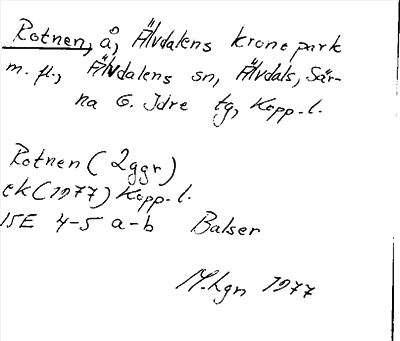 Rotnen, å, Älvdalens kronopark
m. fl., Älvdalens sn, Älvdals, Sär-
na o. Idre tg, Kopp.l.
Rotnen (2ggr)
ek (1977) Kopp.l.
15E 4-5 a-b Balser
M.hgn 1977